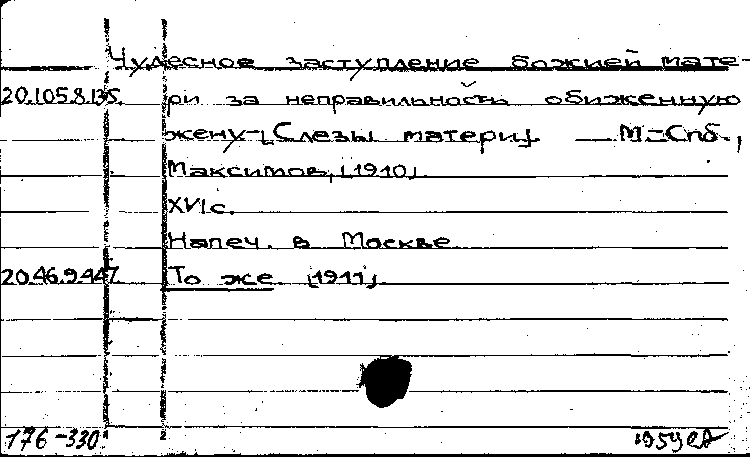 Чудесное заступление божией мате-
20.105.8.135. ри за неправильность обиженную
жену-[Слезы матери]. М-Спб.,
Максимов, [1910].
XVIс.
Напеч. в Москве.
20.46.9.447. То же [1911].
176-330.